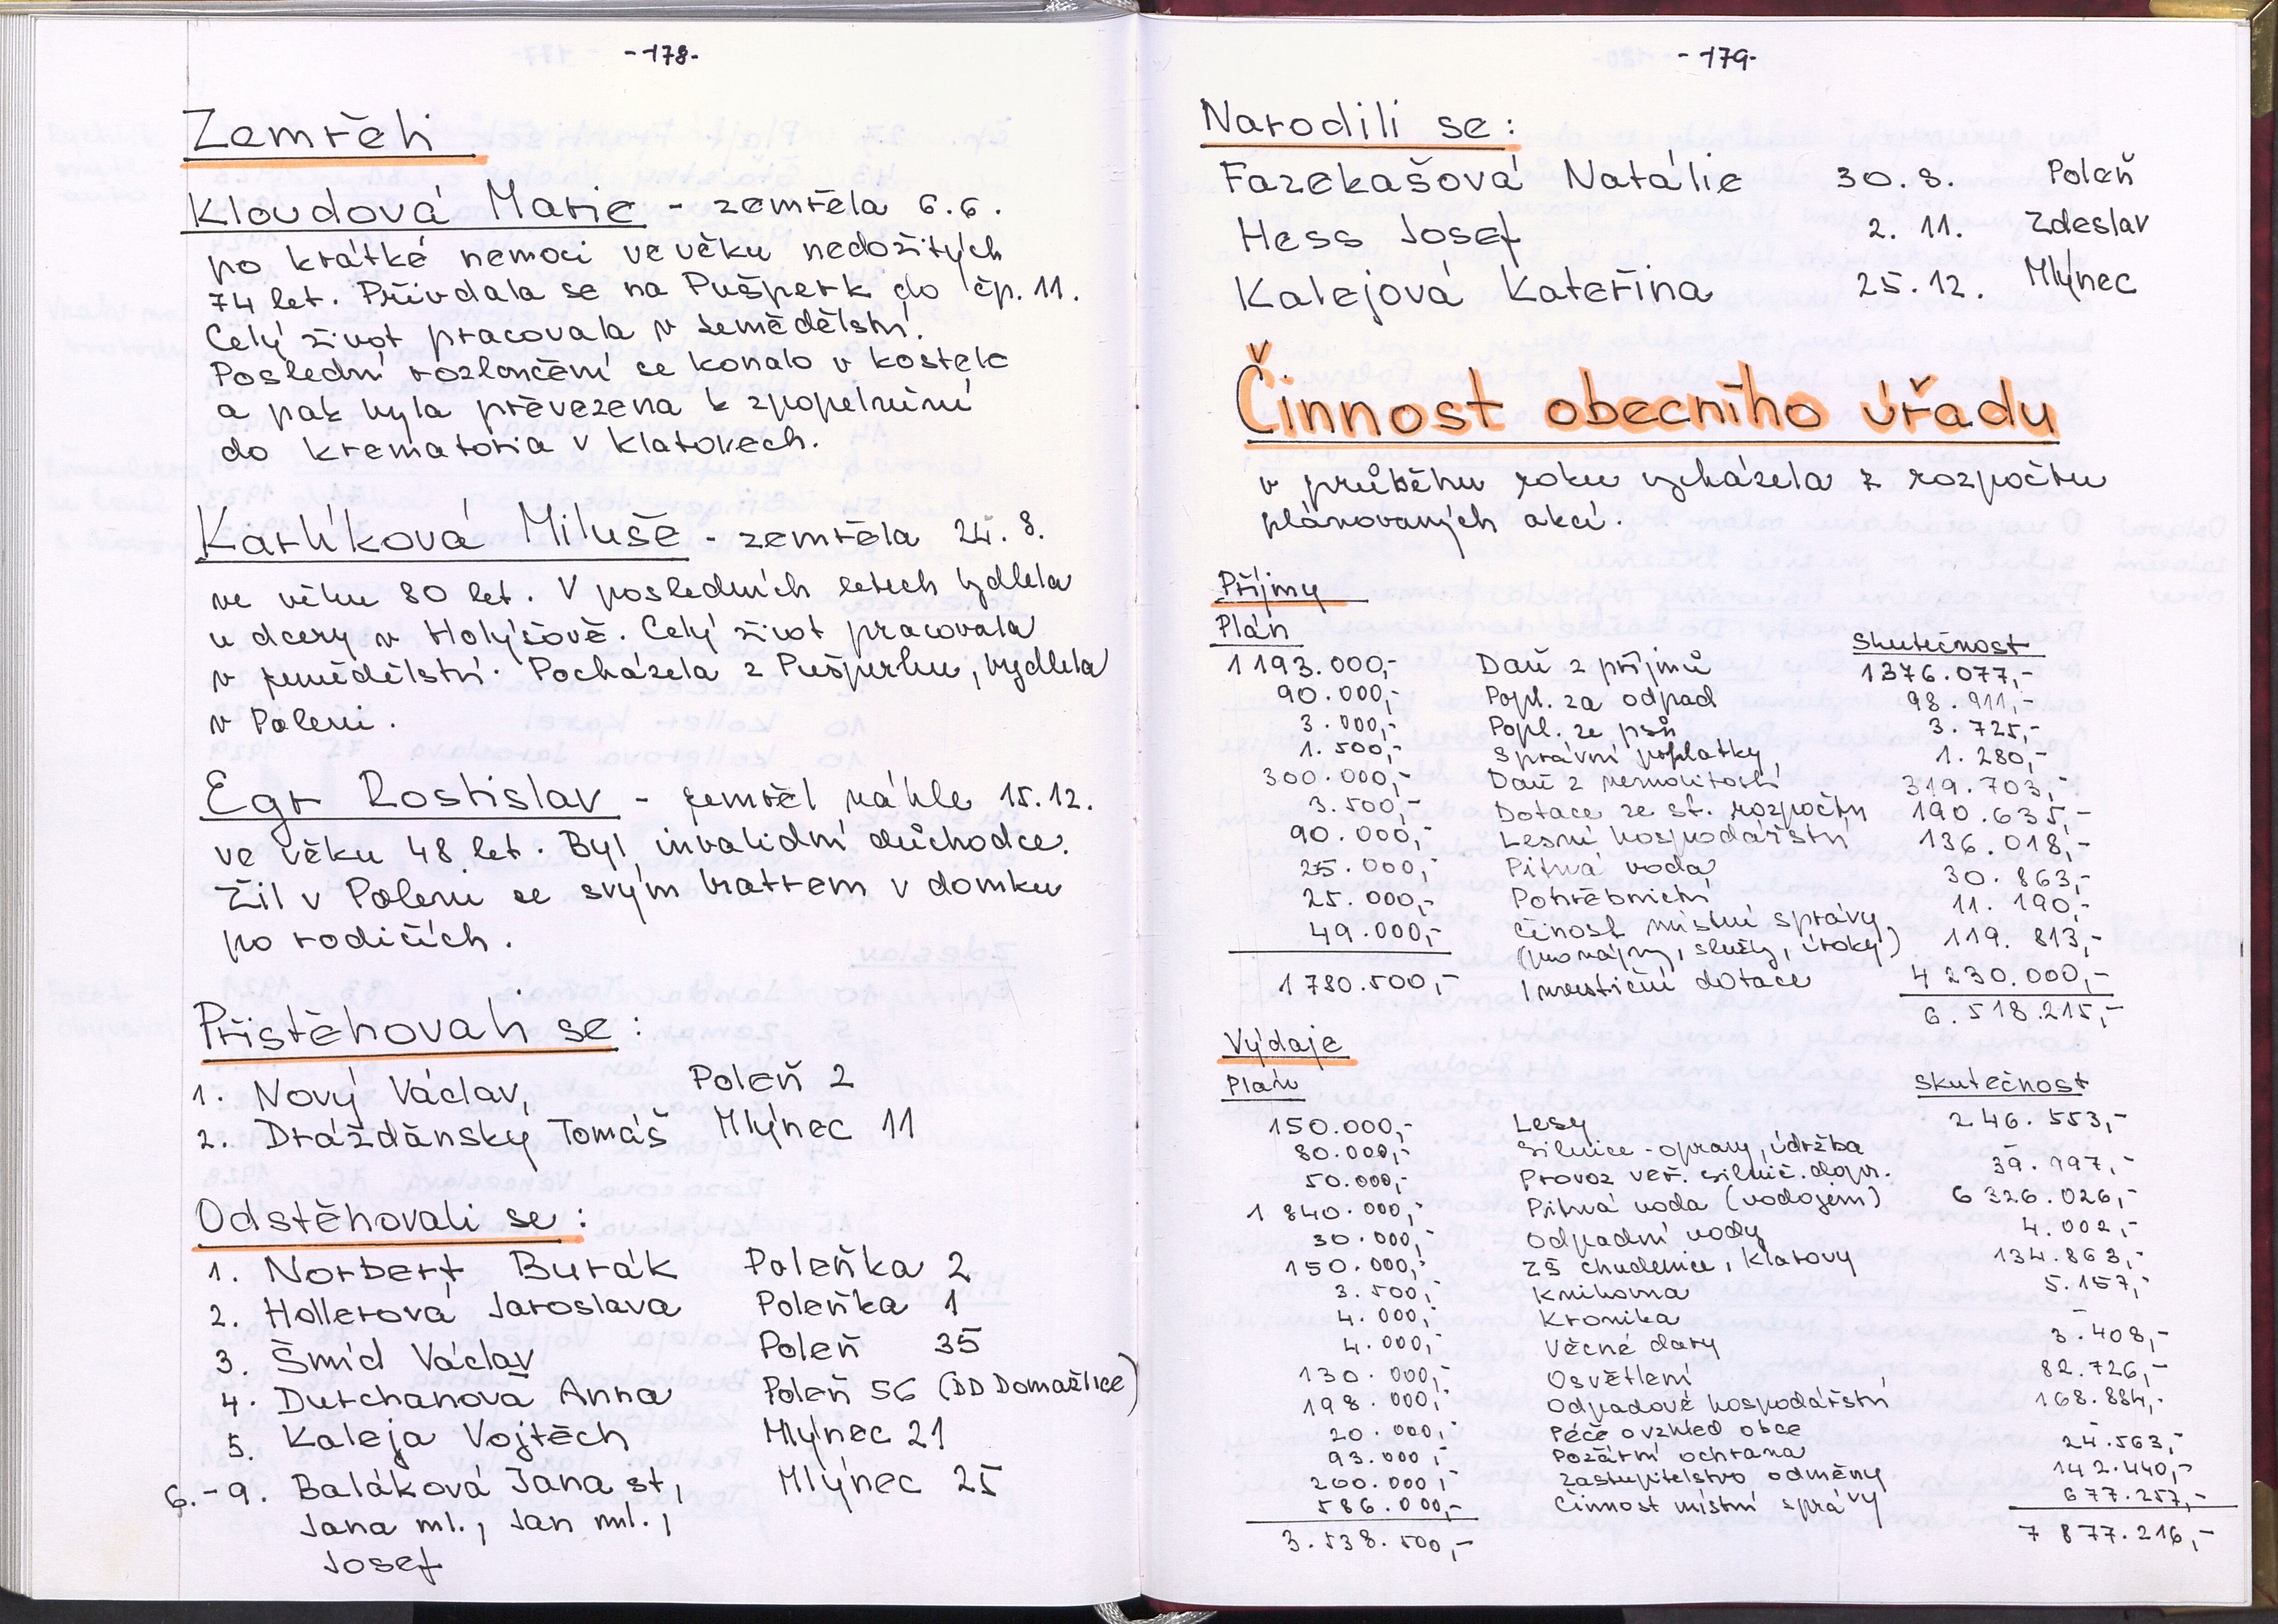 -178-
Zemřeli
Kloudová Marie - zemřela 6.6.
po krátké nemoci ve věku nedožitých
74 let. Přivdala se na Pušperk do čp. 11.
Celý život pracovala v zemědělství.
Poslední rozloučení se konalo v kostele
a pak byla převezena k zpopelnění
do krematoria v Klatovech.
Karlíková Miluše - zemřela 24. 8.
ve věku 80 let. V posledních letech bydlela
u dcery v Holýšově. Celý život pracovala
v zemědělství. Pocházela z Pušperku, bydlela
v Poleni.
Egr Rostislav - zemřel náhle 15.12.
ve věku 48 let. Byl invalidní důchodce.
Žil v Poleni se svým bratrem v domku
po rodičích.
Přistěhovali se:
1. Nový Václav, Poleň 2
2. Drážďánský Tomáš Mlýnec 11
Odstěhovali se:
1. Norbert Burák Poleňka 2
2. Hollerová Jaroslava Poleňka 1
3. Šmíd Václav Poleň 35
4. Durchanová Anna Poleň 56 (DD Domažlice)
5. Kaleja Vojtěch Mlýnec 21
6.-9. Baláková Jana st., Mlýnec 25
Jana ml., Jan ml.,
Josef
-179-
Narodili se:
Fazekašová Natálie 30.8. Poleň
Hess Josef 2. 11. Zdeslav
Kalejová Kateřina 25.12. Mlýnec
Činnost obecního úřadu
v průběhu roku vycházela z rozpočtu
plánovaných akcí.
Příjmy
Plán Skutečnost
1 193.000,- Daň z příjmů 1376.077,-
90.000,- Popl. za odpad 98.911,-
3.000,- Popl. ze psů 3.725,-
1.500,- Správní poplatky 1.280,-
300.000,- Daň z nemovitostí 319.703,-
3.500,- Dotace ze st. rozpočtu 190.635,-
90.000,- Lesní hospodářství 136.018,-
25.000,- Pitná voda 30.863,-
25.000,- Pohřebnictví 11.190,-
49.000,- Činost místní správy 119.813,-
(pronájmy, služby, úroky)
1780.500,- Investiční dotace 4 230.000,-
6.518.215,-
Výdaje
Plán skutečnost
150.000,- Lesy 246.553,-
80.000,- Silnice - opravy, údržba -
50.000,- Provoz veř. silnič. dopr. 39.997,-
1 840.000,- Pitná voda (vodojem) 6 326.026,-
30.000,- Odpadní vody 4.002,-
150.000,- ZŠ Chudenice, Klatovy 134.863,-
3.500,- Knihovna 5.157,-
4.000,- Kronika -
4.000,- Věcné dary 3.408,-
130.000,- Osvětlení 82.726,-
198.000,- Odpadové hospodářství 168.884,-
20.000,- Péče o vzhled obce -
93.000,- Požární ochrana 24.563,-
200.000,- Zastupitelstvo odměny 142.440,-
586.000,- Činnost místní správy 677.257,-
3.538.500,- 7 877.216,-